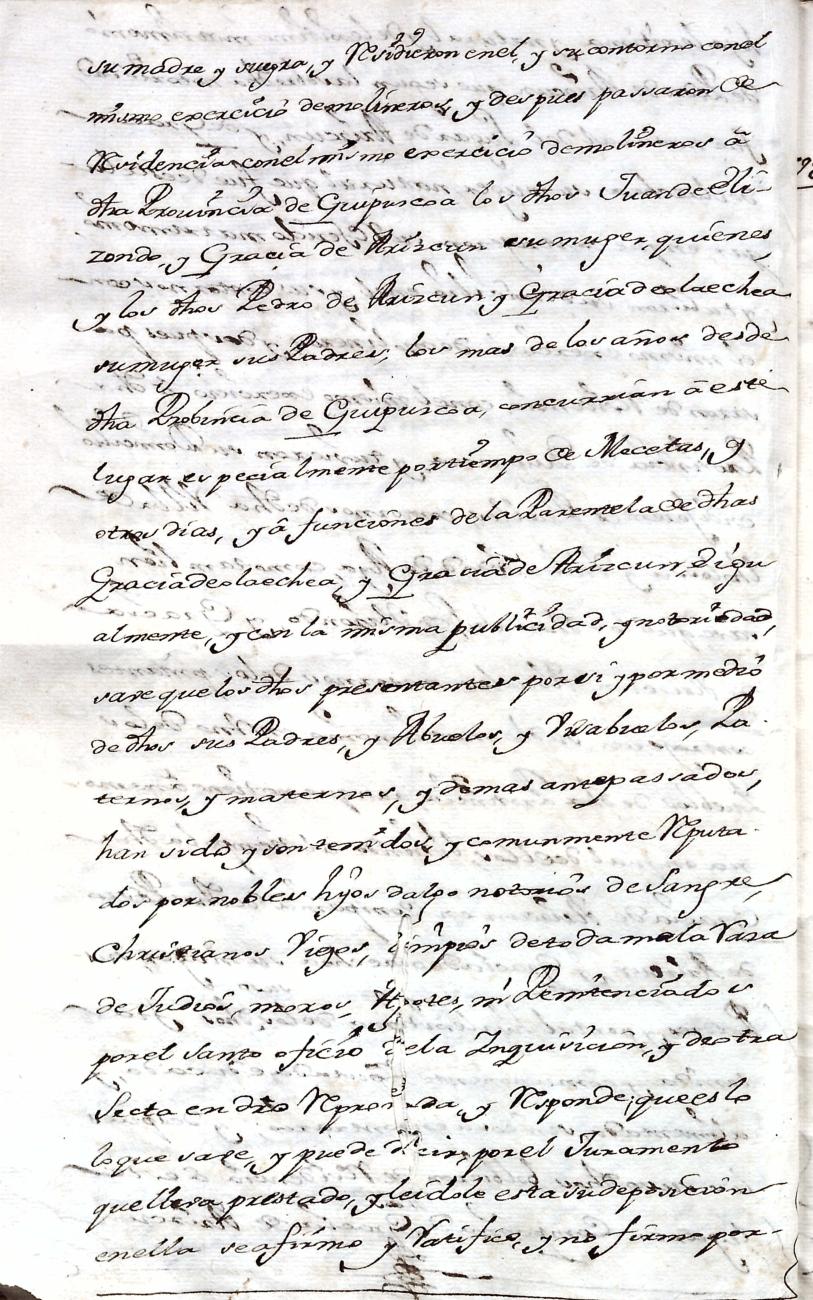 su madre, y suegra, y Rsidieron enel, y su contorno conel
mismo exercicio demolineros, y despues passaron de
Rsidencia conel mismo exercicio demolineros â
dha Provincia de Guipuscoa los dhos Juan de Eli-
zondo, y Gracia de Arizcun su muger, quienes,
y los dhos Pedro de Arizcun y Gracia de olaechea
su muger sus Padres, los mas de los años desde
dha Probincia de Guipuscoa, concurrian â este
lugar especialmente por tiempo de Mecetas, y
otros dias, y â funciones de la Parentela de dhas
Gracia de olaechea, y Gracia de Arizcun, E igu
almente, y con la misma publicidad, y notoriedad,
save que los dhos presentantes por si y por medio
de dhos sus Padres, y Abuelos, y Visabuelos, Pa-
ternos, y maternos, y demas antepassados,
han sido y son tenidos, y comunmente Rputa-
dos por nobles hijos dalgo notorios de Sangre,
Christianos Viejos, limpios de toda mala Raza
de Judios, moros, Agotes, ni Penitenciados
por el santo oficio de la Inquisicion, y de otra
Secta en dro Rprovada, y Rsponde; que es lo
lo que save, y puede decir, por el Juramento
que lleva prestado, y leidole esta su deposicion
en ella se afirmo y Ratifico, y no firmo por-